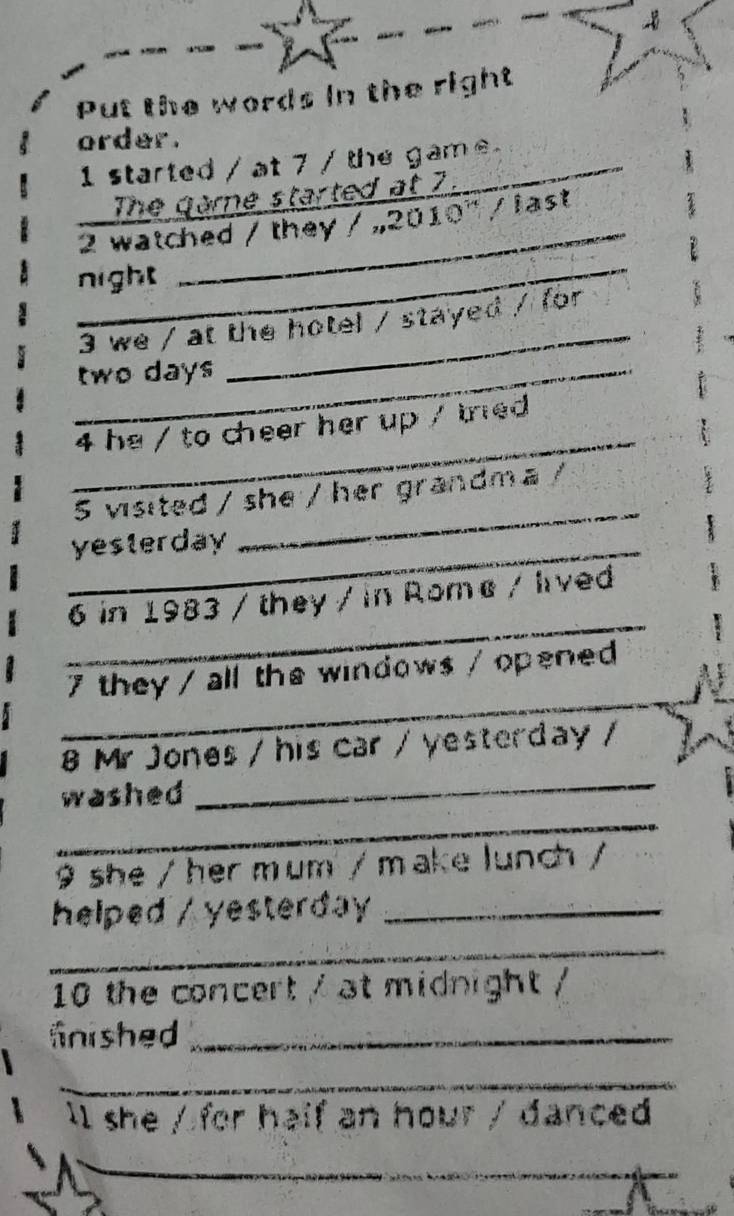 Put the words in the right
order.
1 started / at 7 / the game.
The game started at 7.
2 watched / they / „2010" / last
night
3 we / at the hotel / stayed / for
two days
4 he / to cheer her up / tried
5 visited / she / her grandma /
yesterday
6 in 1983 / they / in Rome / lived
7 they / all the windows / opened
8 Mr Jones / his car / yesterday /
washed
9 she / her mum / make lunch /
helped / yesterday
10 the concert / at midnight /
finished
11 she / for half an hour / danced